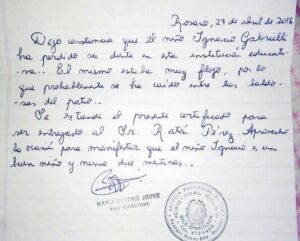 Rosario, 27 de abril de 2016
Dejo constancia que el niño Ignacio Gabrielli
ha perdido su diente en esta institución educati-
va.. El mismo estaba muy flojo, por lo
que probablemente se ha caído entre las baldo-
sas del patio..
Se extiende el presente certificado para
ser entregado al Sr. Ratón Pérez. Aprovecho
la ocasión para manifestar que el niño Ignacio es un
buen niño y nunca dice mentiras..
MARIA EUGENIE JOUVE
VICE-DIRECTORA
ESCUELA PROVINCIAL
VICE DIRECCIÓN